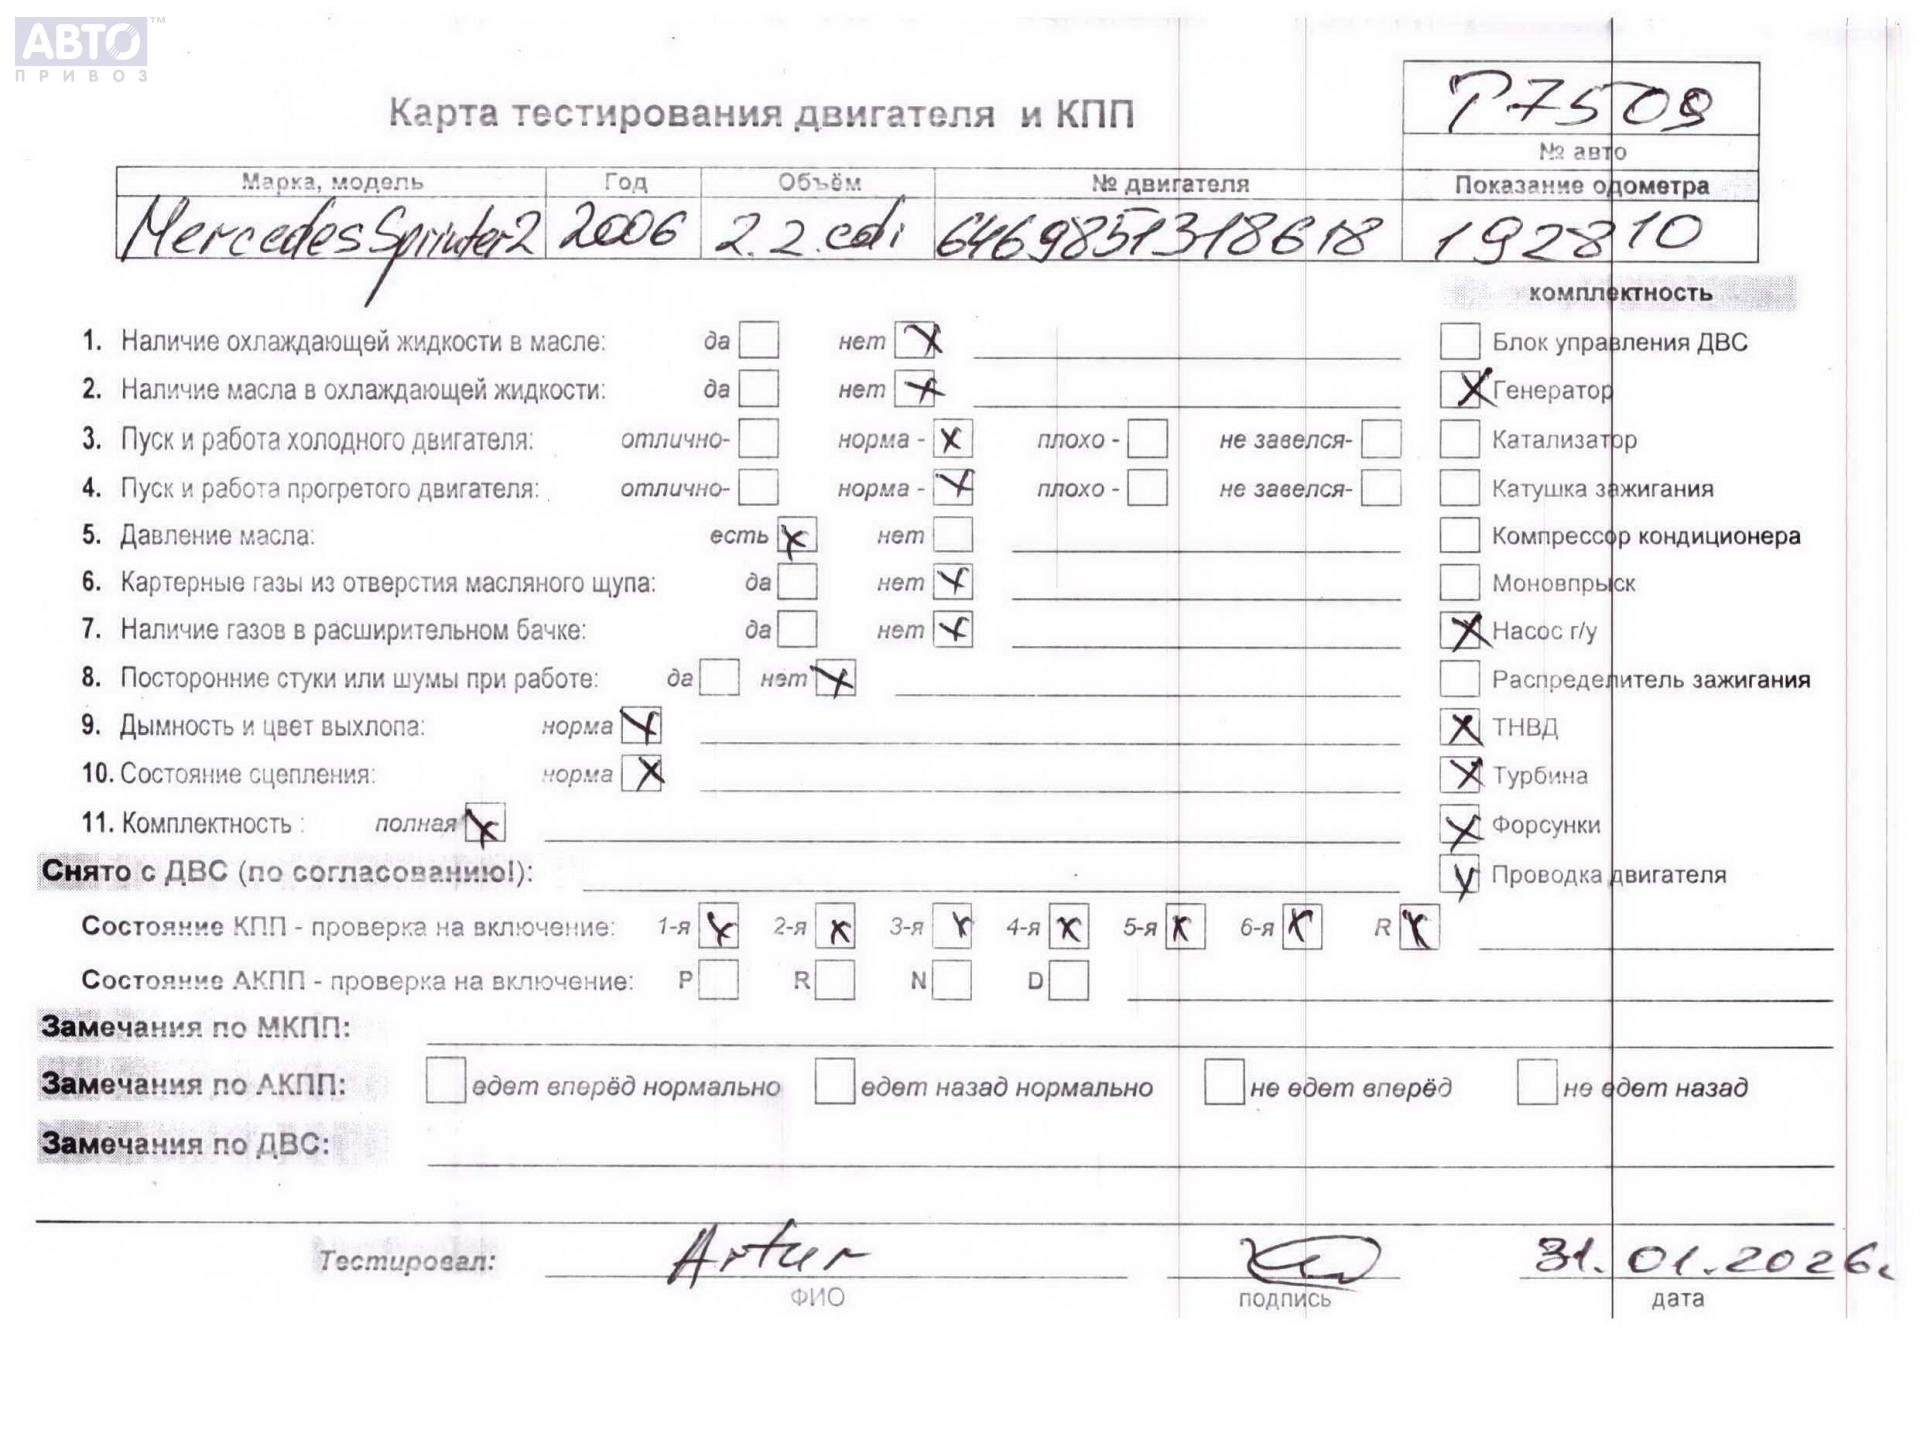 АВТО™
ПРИВОЗ
P7509
Карта тестирования двигателя и КПП
№ авто
Марка, модель Год Объём № двигателя Показание одометра
Mercedes Sprinter2 2006 2.2.cdi 64698351318618 192810
комплектность
1. Наличие охлаждающей жидкости в масле: да нет X Блок управления ДВС
2. Наличие масла в охлаждающей жидкости: да нет X X Генератор
3. Пуск и работа холодного двигателя: отлично- норма - X плохо - не завелся- Катализатор
4. Пуск и работа прогретого двигателя: отлично- норма - X плохо - не завелся- Катушка зажигания
5. Давление масла: есть X нет Компрессор кондиционера
6. Картерные газы из отверстия масляного щупа: да нет X Моновпрыск
7. Наличие газов в расширительном бачке: да нет X X Насос г/у
8. Посторонние стуки или шумы при работе: да нет X Распределитель зажигания
9. Дымность и цвет выхлопа: норма X X ТНВД
10. Состояние сцепления: норма X X Турбина
11. Комплектность : полная X X Форсунки
Снято с ДВС (по согласованию!): X Проводка двигателя
Состояние КПП - проверка на включение: 1-я X 2-я X 3-я X 4-я X 5-я X 6-я X R X
Состояние АКПП - проверка на включение: P R N D
Замечания по МКПП:
Замечания по АКПП: едет вперёд нормально едет назад нормально не едет вперёд не едет назад
Замечания по ДВС:
Тестировал: Artur 31.01.2026г
ФИО подпись дата